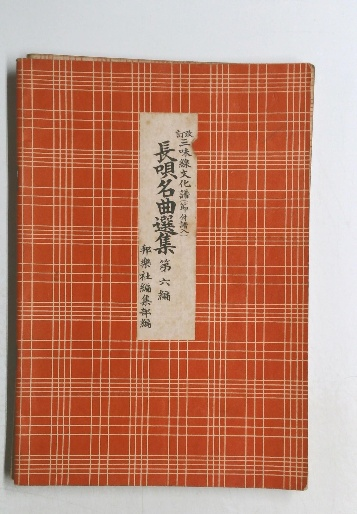 改訂三味線文化譜
長唄名曲選集 第六編
邦樂社編集部編